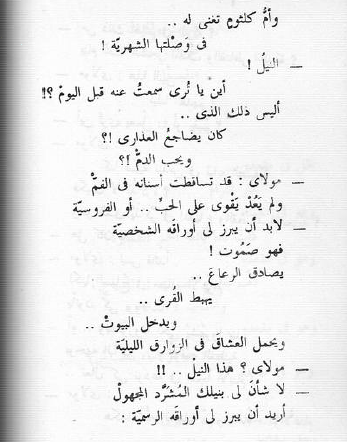 وأمُّ كلثومٍ تغنى له ..
فى وَصْلتها الشهريّة !
— النيلُ !
أين يا تُرى سمعتُ عنه قبل اليومْ ؟!
أليس ذلك الذى ..
كان يضاجعُ العذارى !؟
ويحب الدمّْ !؟
— مولاى : قد تساقطت أسنانه فى الفمّْ
ولم يَعُدْ يَقْوى على الحبِّ .. أو الفروسيّة
— لابد أن يبرز لى أوراقَه الشخصيّة
فهو صَمُوت !
يصادق الرعاعَ ..
يهبط القُرى ..
ويدخل البيوتْ ..
ويحمل العشاقَ فى الزوارق الليليّة
— مولاى ؟ هذا النيلُ .. !!
— لا شأنَ لى بنيلك المُشرَّد المجهولْ
أريد أن يبرز لى أوراقَه الرسميّة :